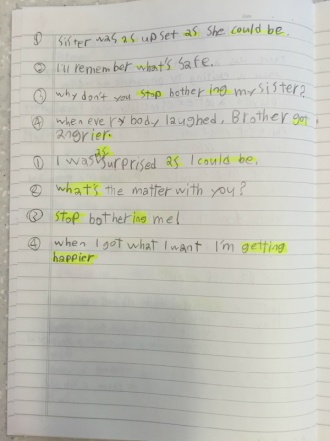 ① Sister was as upset as she could be.
② I'll remember what's safe.
③ why don't you stop bothering my sister?
④ when every body laughed, Brother got
angrier.
① I was as surprised as I could be.
② what's the matter with you?
③ stop bothering me!
④ when I got what I want I'm getting
happier